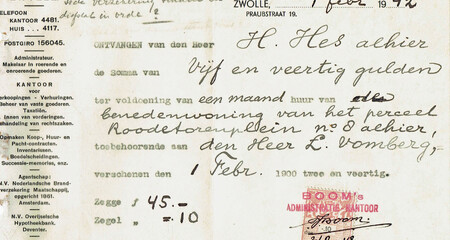 ZWOLLE,
PRAUBSTRAAT 19.
1 Febr. 1942
TELEFOON
KANTOOR 4481.
HUIS . . 4117.
POSTGIRO 156045.
Administrateur.
Makelaar in roerende en
onroerende goederen.
KANTOOR
voor
Verkoopingen - Verhuringen.
Beheer van vaste goederen.
Taxatiën.
Innen van vorderingen.
Behandeling van rechtzaken.
Opmaken Koop-, Huur- en
Pacht-contracten.
Inventarissen.
Boedelscheidingen.
Successie-memories, enz.
Agentschap:
N.V. Nederlandsche Brand-
verzekering Maatschappij,
opgericht 1861.
Amsterdam.
N.V. Overijselsche
Hypotheekbank.
Deventer.
ONTVANGEN van den Heer H. Hes alhier
de Somma van Vijf en veertig gulden
ter voldoening van een maand huur van de
benedenwoning van het perceel
Roodetorenplein no 8 alhier,
toebehoorende aan den Heer L. Vomberg,-
verschenen den 1 Febr. 1900 twee en veertig.
Zegge ƒ 45.-
Zegel „ -.10
BOOM's
ADMINISTRATIE-KANTOOR
Boom